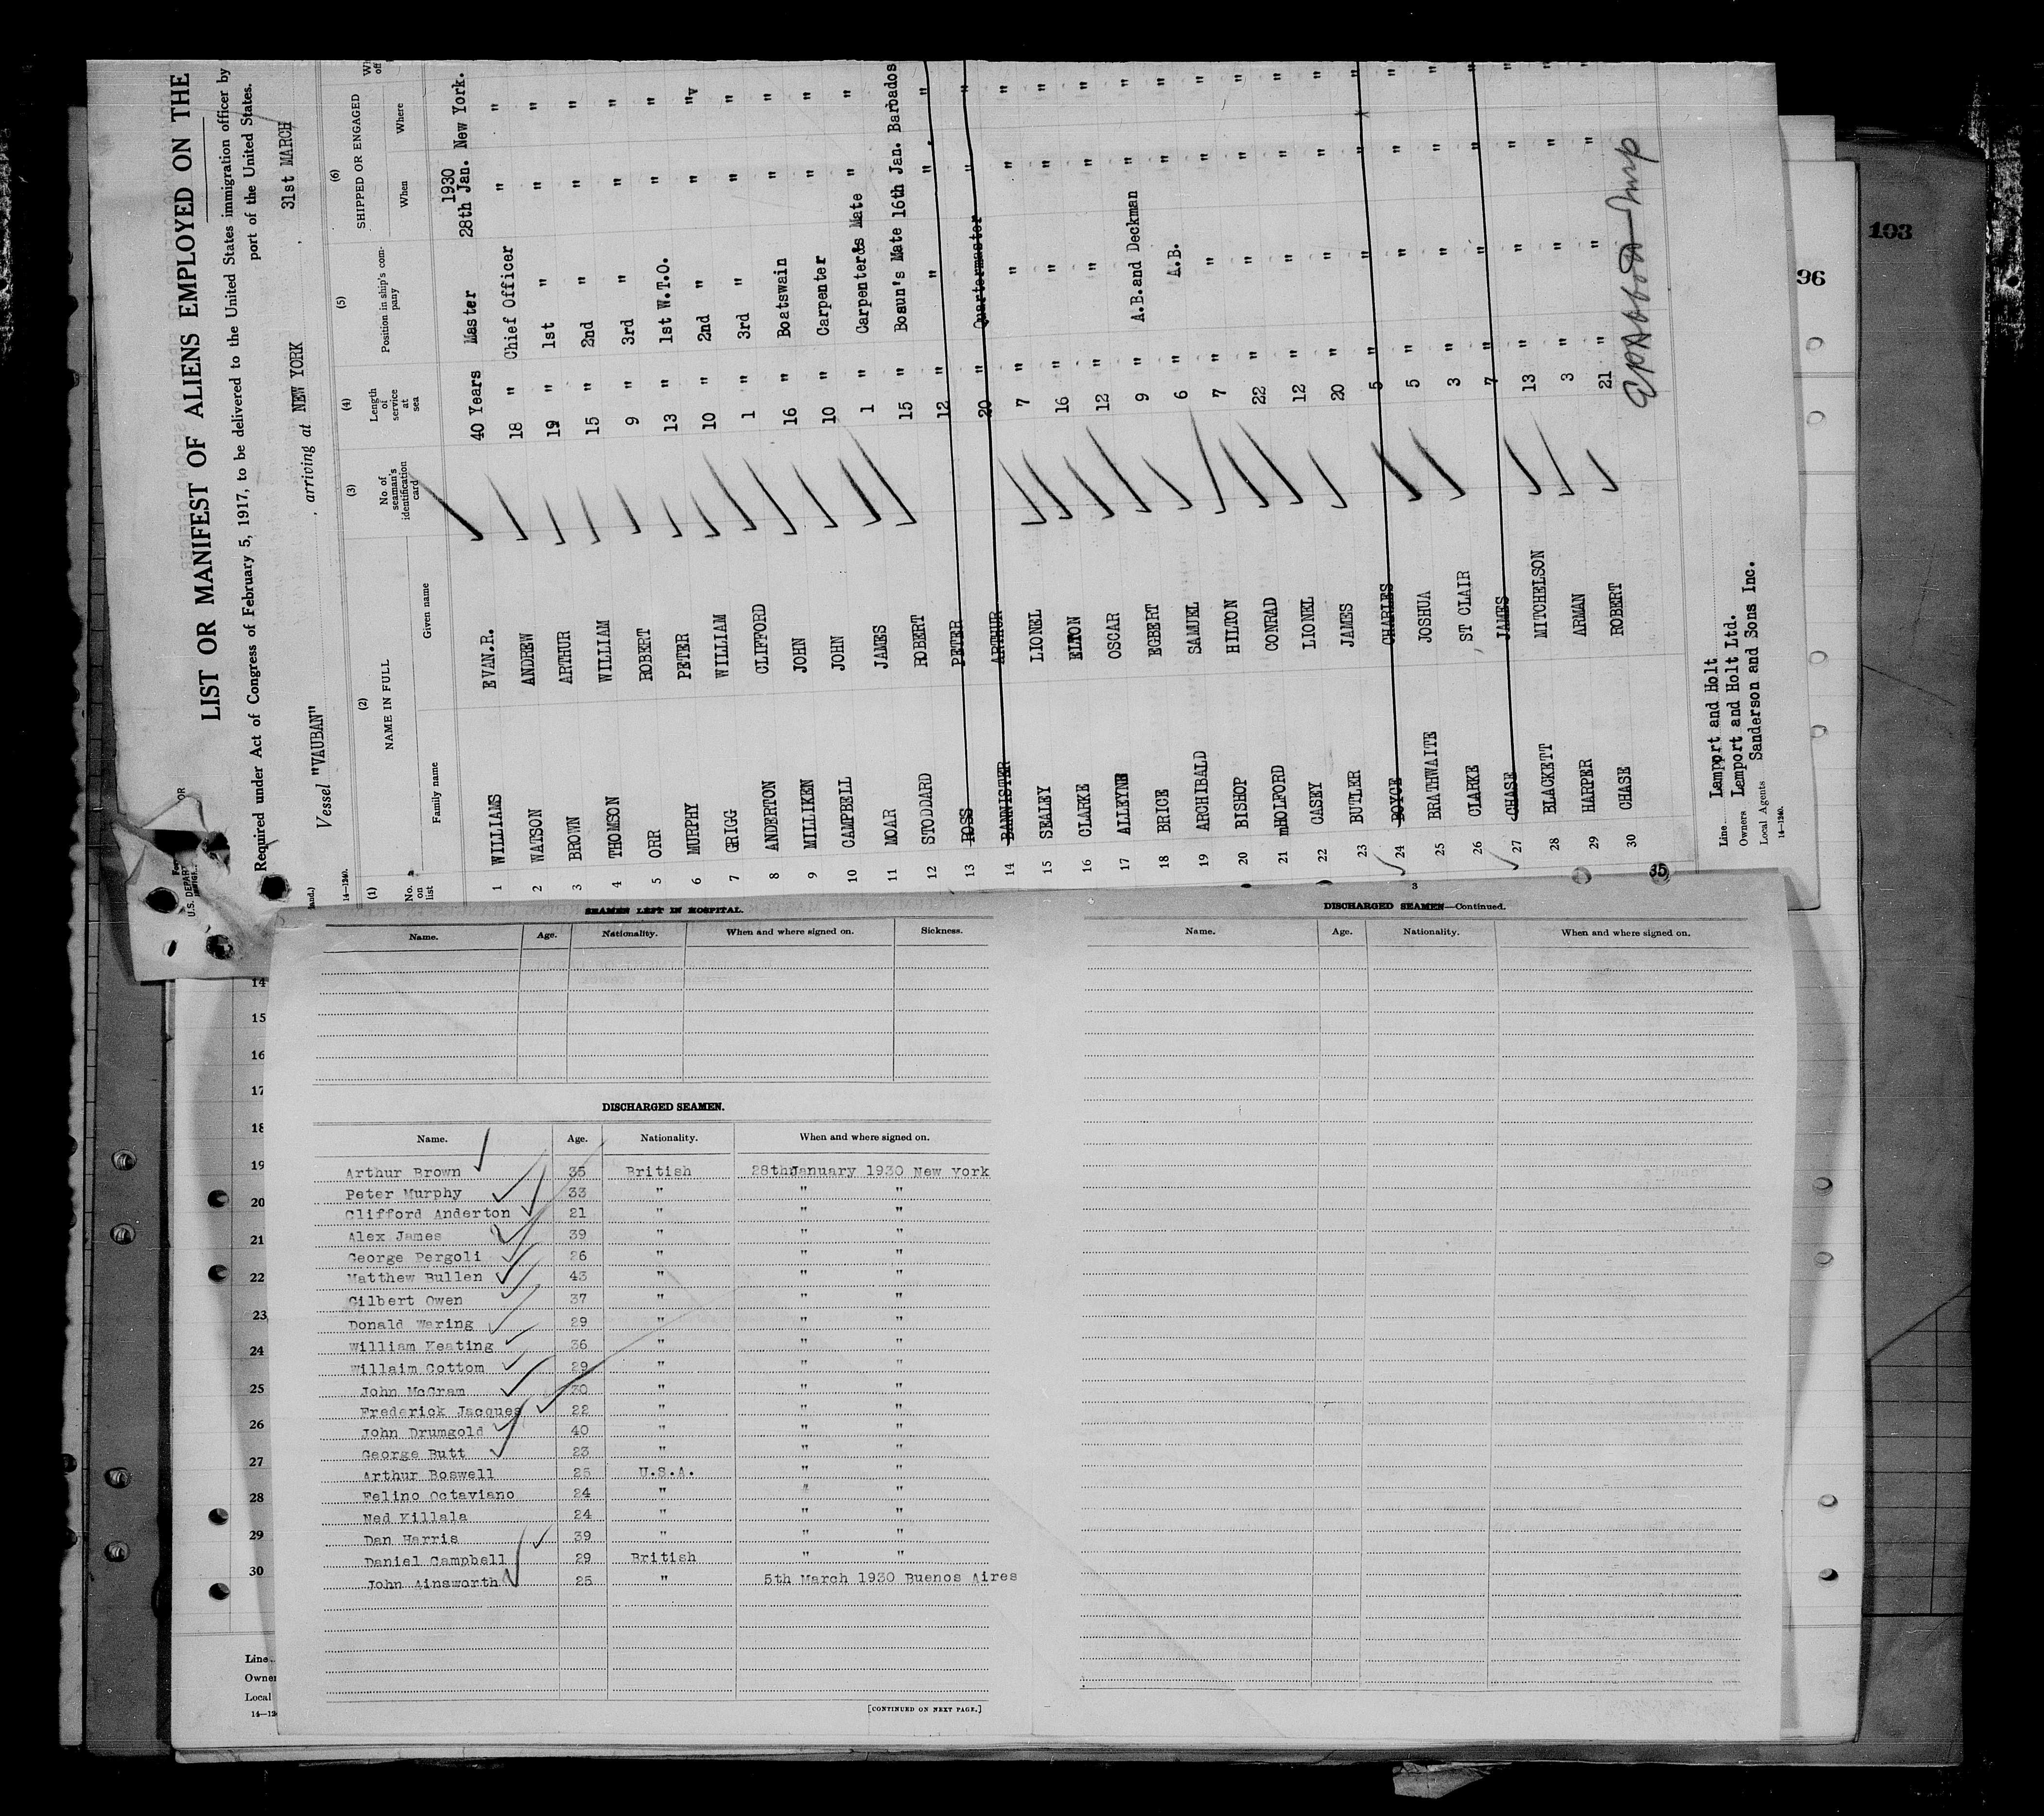 LIST OR MANIFEST OF ALIENS EMPLOYED ON THE
Required under Act of Congress of February 5, 1917, to be delivered to the United States immigration officer by
port of the United States.
Vessel "VAUBAN" arriving at NEW YORK, 31st MARCH
14—1240.
(1) (2) (3) (4) (5) (6)
No. on list NAME IN FULL No. of seaman's identification card Length of service at sea Position in ship's company SHIPPED OR ENGAGED
Family name Given name When Where
1930
1 WILLIAMS EVAN.R. 40 Years Master 28th Jan. New York.
2 WATSON ANDREW 18 " Chief Officer " "
3 BROWN ARTHUR 19 " 1st " " "
4 THOMSON WILLIAM 15 " 2nd " " "
5 ORR ROBERT 9 " 3rd " " "
6 MURPHY PETER 13 " 1st W.T.O. " "
7 GRIGG WILLIAM 10 " 2nd " " "
8 ANDERTON CLIFFORD 1 " 3rd " " "
9 MILLIKEN JOHN 16 " Boatswain " "
10 CAMPBELL JOHN 10 " Carpenter " "
11 MOAR JAMES 1 " Carpenter&s Mate " "
12 STODDARD ROBERT 15 " Bosun's Mate 16th Jan. Barbados
13 ROSS PETER 12 " " " "
14 BANNISTER ARTHUR 20 " Quartermaster " "
15 SEALEY LIONEL 7 " " " "
16 CLARKE ELTON 16 " " " "
17 ALLEYNE OSCAR 12 " " " "
18 BRICE EGBERT 9 " A.B.and Deckman " "
19 ARCHIBALD SAMUEL 6 " A.B. " "
20 BISHOP HILTON 7 " " " "
21 mHOLFORD CONRAD 22 " " " "
22 CASEY LIONEL 12 " " " "
23 BUTLER JAMES 20 " " " "
24 BOYCE CHARLES 5 " " " "
25 BRATHWAITE JOSHUA 5 " " " "
26 CLARKE ST CLAIR 3 " " " "
27 CHASE JAMES 7 " " " "
28 BLACKETT MITCHELSON 13 " " " "
29 HARPER ARMAN 3 " " " "
30 CHASE ROBERT 21 " " " "
35
Line Lamport and Holt
Owners Lemport and Holt Ltd.
Local Agents Sanderson and Sons Inc.
14—1240.
103
96
SEAMEN LEFT IN HOSPITAL.
Name. Age. Nationality. When and where signed on. Sickness.
DISCHARGED SEAMEN.
Name. Age. Nationality. When and where signed on.
Arthur Brown 35 British 28thJanuary 1930 New York
Peter Murphy 33 " " "
Clifford Anderton 21 " " "
Alex James 39 " " "
George Pergoli 26 " " "
Matthew Bullen 43 " " "
Gilbert Owen 37 " " "
Donald Waring 29 " " "
William Keating 36 " " "
Willaim Cottom 29 " " "
John McGram 30 " " "
Frederick Jacques 22 " " "
John Drumgold 40 " " "
George Butt 23 " " "
Arthur Boswell 25 U.S.A. " "
Felino Octaviano 24 " " "
Ned Killala 24 " " "
Dan Harris 39 " " "
Daniel Campbell 29 British " "
John Ainsworth 25 " 5th March 1930 Buenos Aires
[CONTINUED ON NEXT PAGE.]
3
DISCHARGED SEAMEN—Continued.
Name. Age. Nationality. When and where signed on.
14
15
16
17
18
19
20
21
22
23
24
25
26
27
28
29
30
Line
Owner
Local
14—12